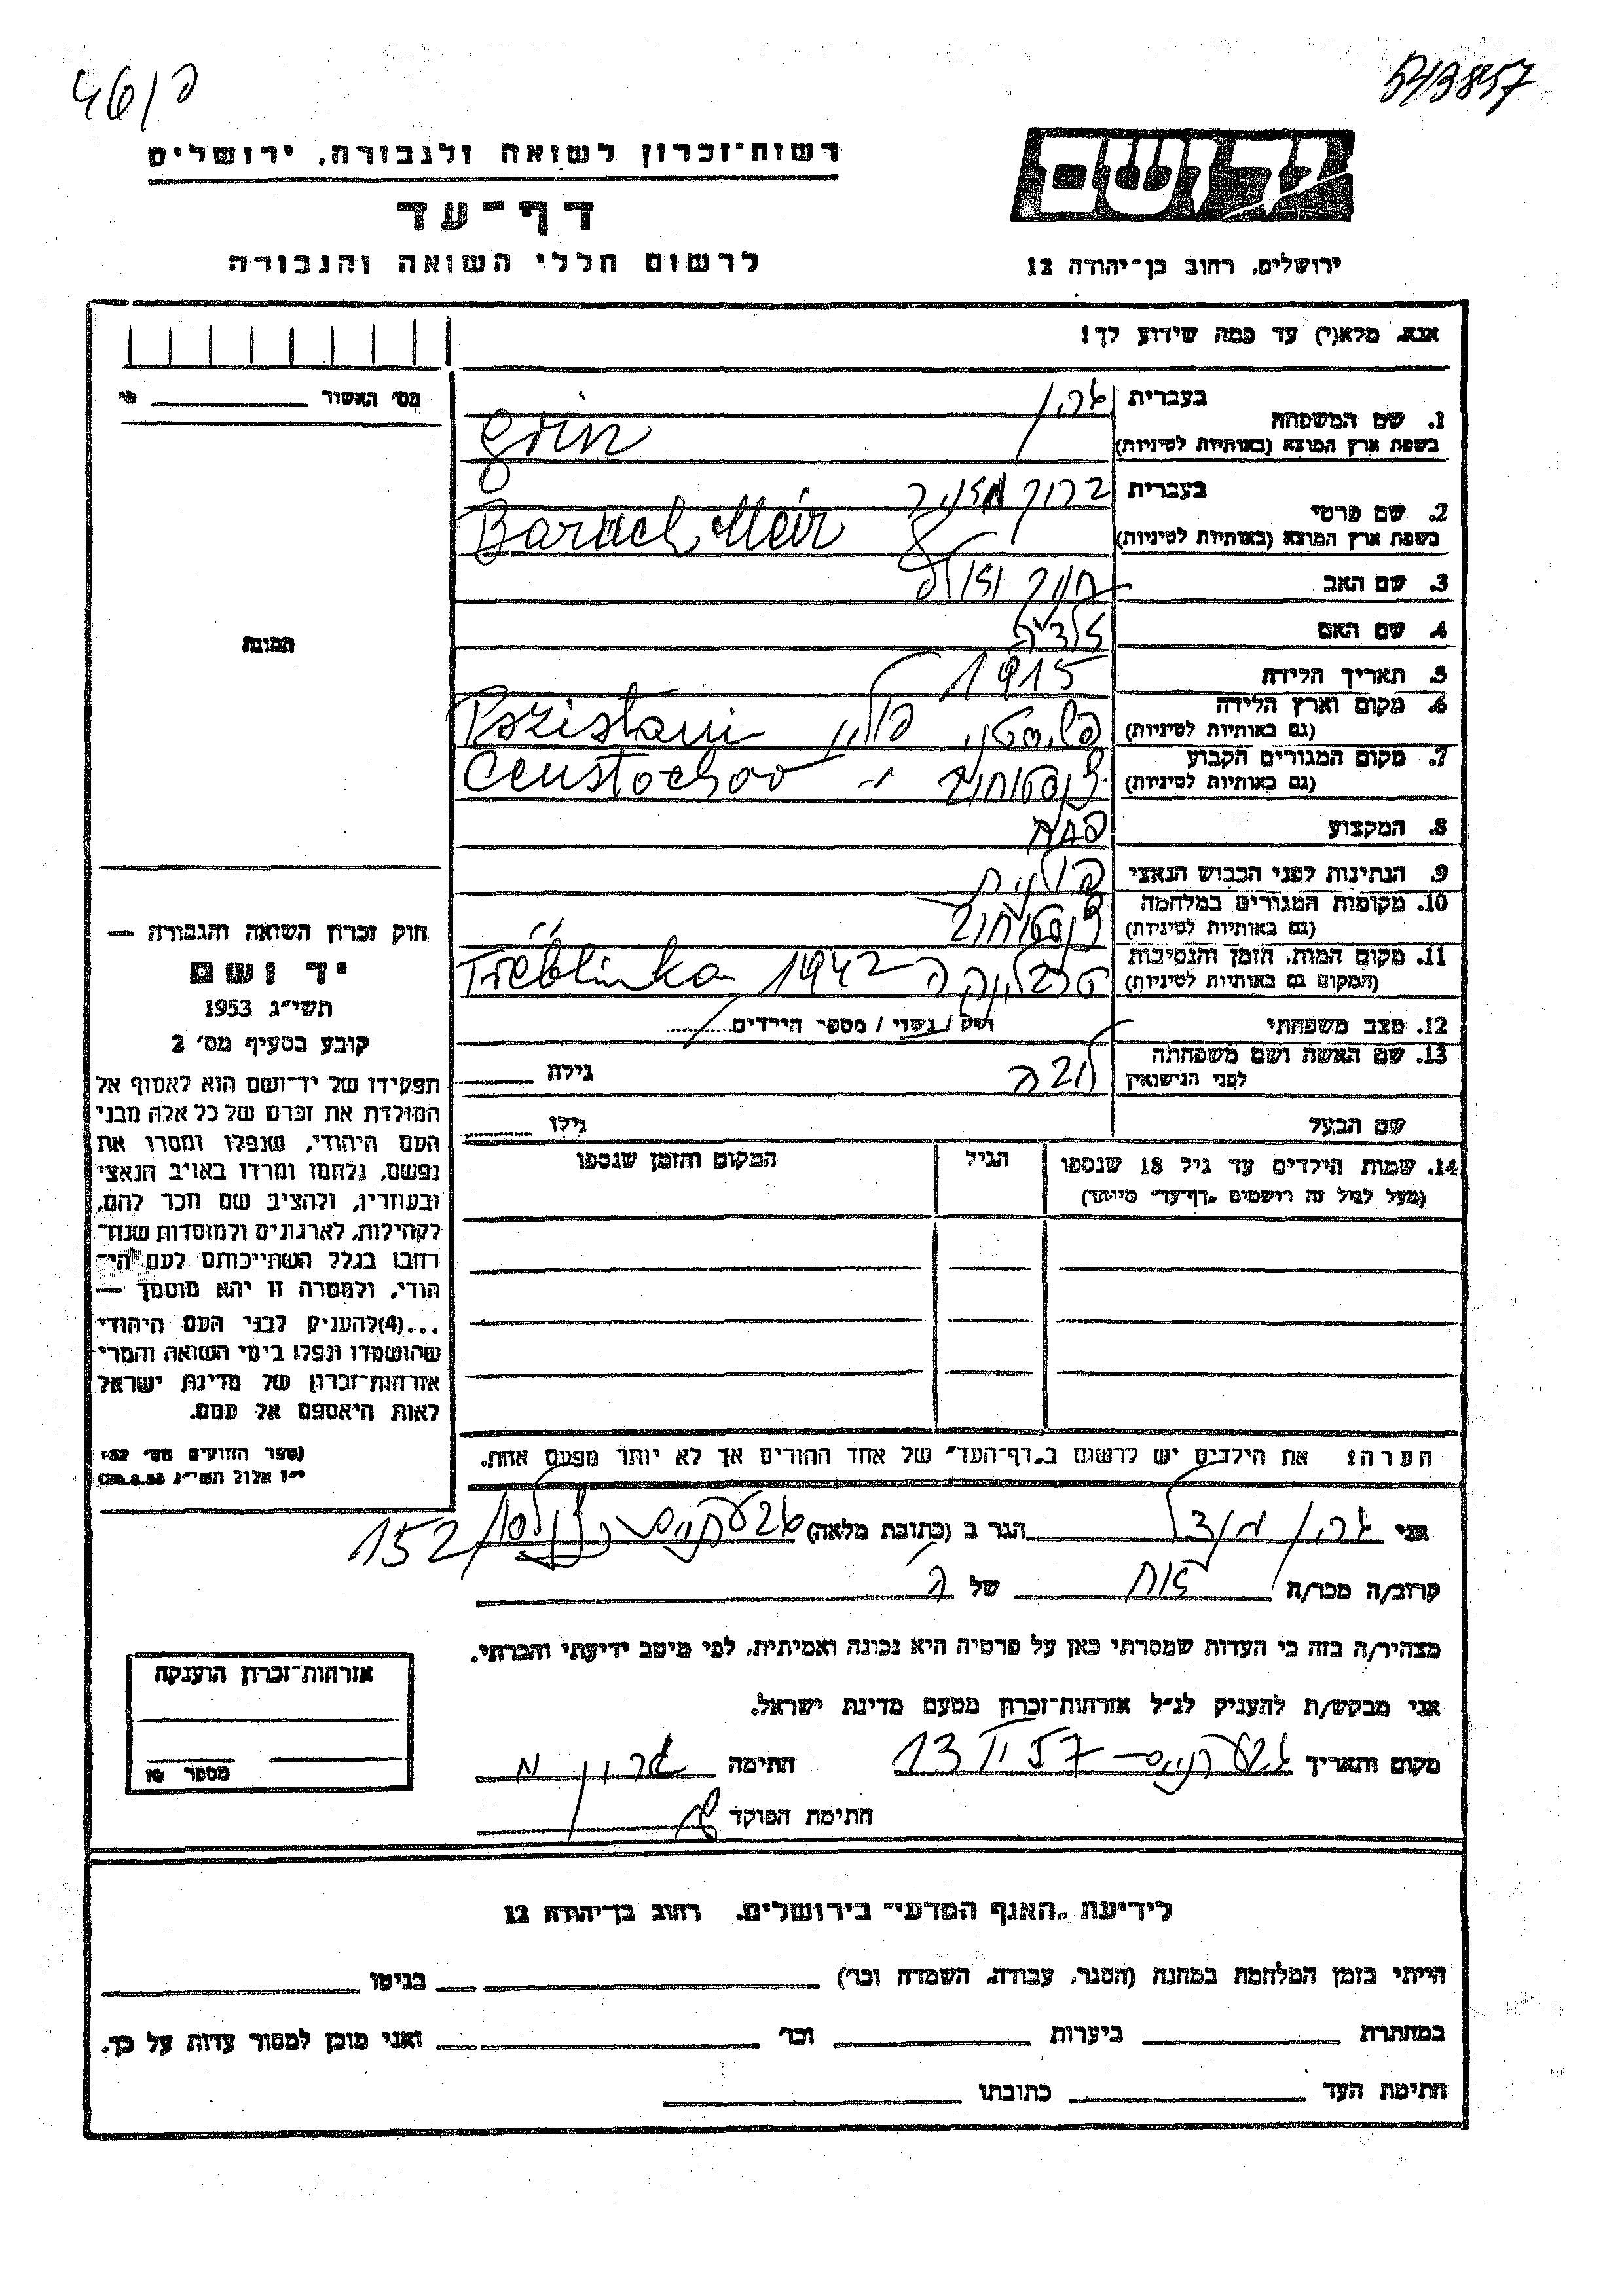 46/פ
רשות־זכרון לשואה ולגבורה, ירושלים
דף־עד
לרשום חללי השואה והגבורה
יד ושם
ירושלים, רחוב בן־יהודה 12
אנא, מלא(י) עד כמה שידוע לך!
מס׳ האשור
1. שם המשפחה
בעברית גרין
בשפת ארץ המוצא (באותיות לטיניות) Grin
2. שם פרטי
בעברית ברוך מאיר
בשפת ארץ המוצא (באותיות לטיניות) Baruch Meir
3. שם האב
4. שם האם
5. תאריך הלידה 1915
6. מקום וארץ הלידה
(גם באותיות לטיניות) פולין Pszistami
7. מקום המגורים הקבוע
(גם באותיות לטיניות) צ׳נסטוחוב ״ Censtochov
8. המקצוע
9. הנתינות לפני הכבוש הנאצי פולנית
10. מקומות המגורים במלחמה
(גם באותיות לטיניות) צ׳נסטוחוב ״
11. מקום המות, הזמן והנסיבות
(המקום גם באותיות לטיניות) טרבלינקה 1942 Treblinka
12. מצב משפחתי רווק / נשוי / מספר הילדים
13. שם האשה ושם משפחתה
לפני הנישואין גילה
שם הבעל גילו
14. שמות הילדים עד גיל 18 שנספו
(מעל לגיל זה רושמים „דף־עד״ מיוחד)
הגיל
המקום והזמן שנספו
הערה: את הילדים יש לרשום ב„דף־העד״ של אחד ההורים אך לא יותר מפעם אחת.
התמונה
חוק זכרון השואה והגבורה —
יד ושם
תשי״ג 1953
קובע בסעיף מס׳ 2
תפקידו של יד־ושם הוא לאסוף אל
המולדת את זכרם של כל אלה מבני
העם היהודי, שנפלו ומסרו את
נפשם, נלחמו ומרדו באויב הנאצי
ובעוזריו, ולהציב שם וזכר להם,
לקהילות, לארגונים ולמוסדות שנח־
רבו בגלל השתייכותם לעם הי־
הודי, ולמטרה זו יהא מוסמך —
...(4) להעניק לבני העם היהודי
שהושמדו ונפלו בימי השואה והמרי
אזרחות־זכרון של מדינת ישראל
לאות היאספם אל עמם.
(ספר החוקים מס׳ 132
י״ז אלול תשי״ג 28.8.53)
אני גרין מנדל הגר ב (כתובת מלאה) 152
קרוב/ה מכר/ה אח של ה
מצהיר/ה בזה כי העדות שמסרתי כאן על פרטיה היא נכונה ואמיתית, לפי מיטב ידיעתי והכרתי.
אני מבקש/ת להעניק לנ״ל אזרחות־זכרון מטעם מדינת ישראל.
מקום ותאריך 13 II 57 חתימה גרין מ
חתימת הפוקד
אזרחות־זכרון הוענקה
מספר
לידיעת „האגף המדעי״ בירושלים, רחוב בן־יהודה 12
הייתי בזמן המלחמה במחנה (הסגר, עבודה, השמדה וכו׳) בגיטו
במחתרת ביערות וכו׳ ואני מוכן למסור עדות על כך.
חתימת העד כתובתו